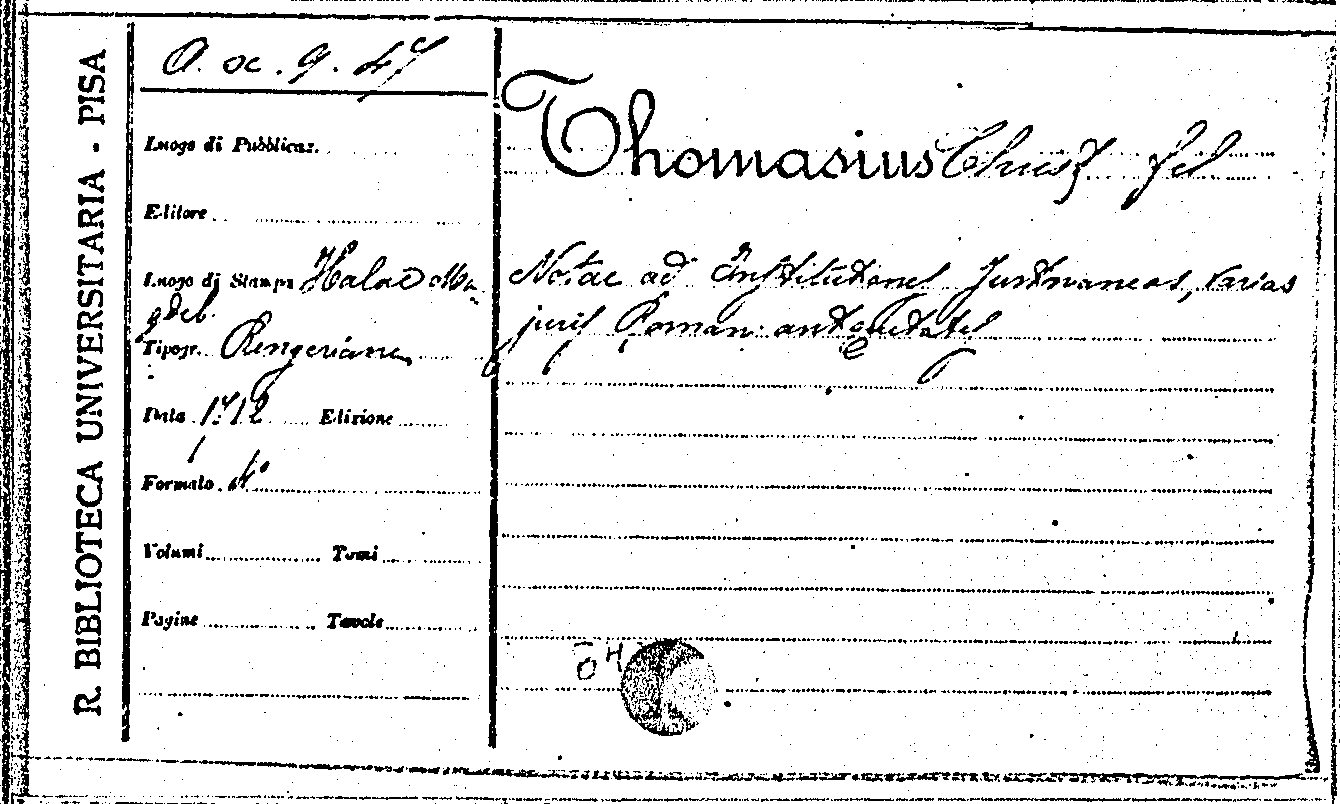 R. BIBLIOTECA UNIVERSITARIA - PISA
O. x. 9. 47
Luogo di Pubblicaz.
Editore
Luogo di Stampa Halae Ma
gdeb.
Tipogr. Rengeriana
Data 1712 Edizione
Formato 4°
Volumi Tomi
Pagine Tavole
Thomasius Christ
Notae ad Institutiones Justinianeas, varias
juris Roman. antiquitates